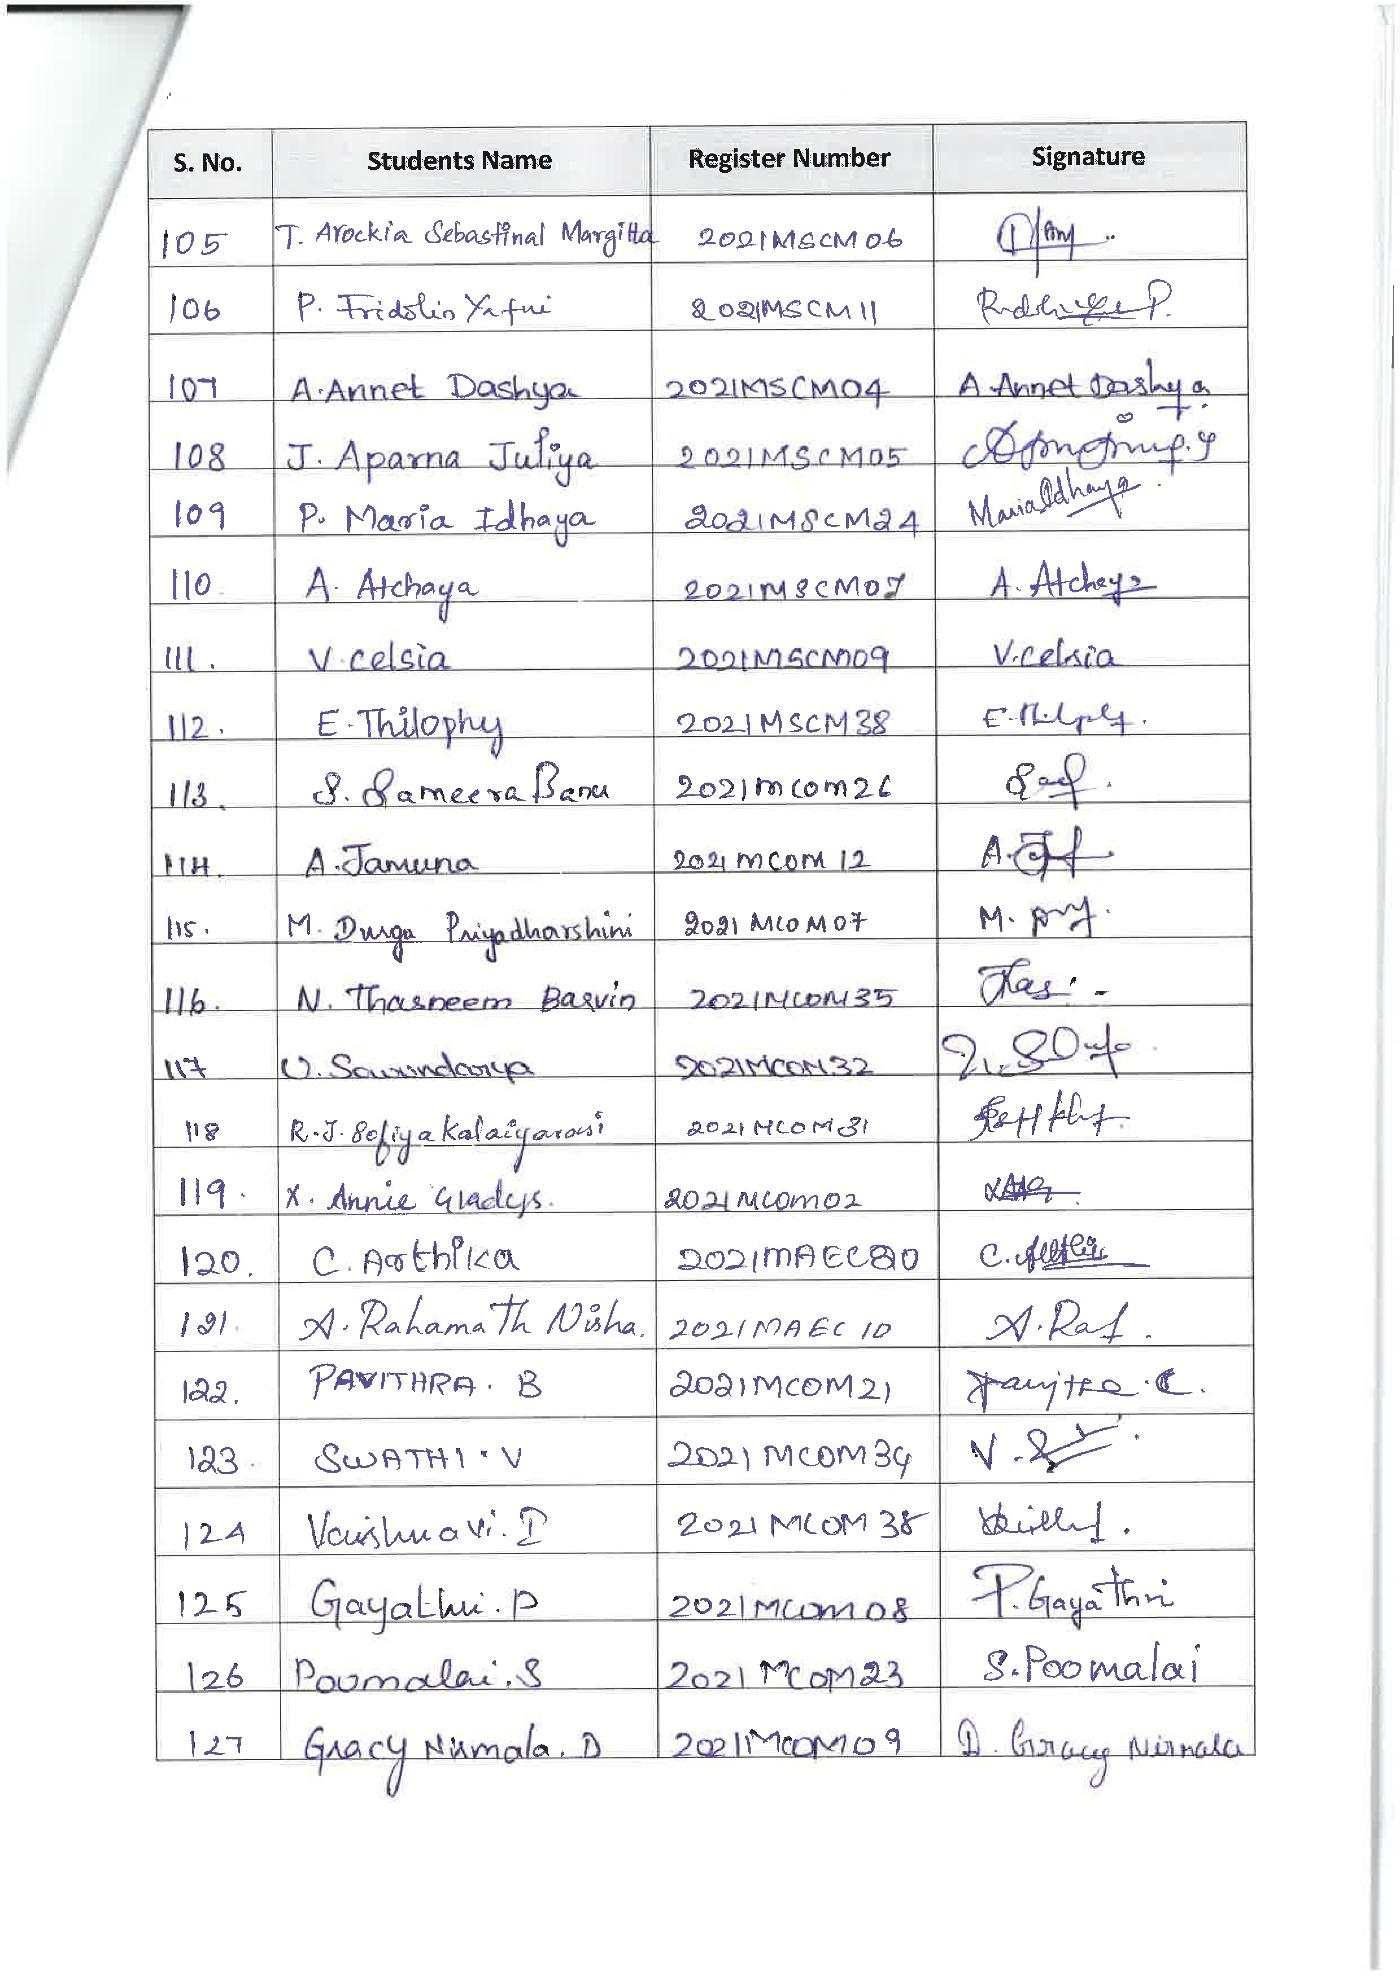 S. No. Students Name Register Number Signature
105 T. Arockia Sebastinal Margitta 2021MSCM06
106 P. Fridolin Yafni 2021MSCM11 P.
107 A. Annet Dashya 2021MSCM04 A Annet Dashya
108 J. Aparna Juliya 2021MSCM05
109 P. Maria Idhaya 2021MSCM24 Maria Idhaya
110 A. Atchaya 2021MSCM07 A. Atchaya
111. V. Celsia 2021MSCM09 V. Celsia
112. E. Thilophy 2021MSCM38 E. Thilophy.
113. S. Sameera Banu 2021mcom26
114. A. Jamuna 2021 mCOM 12 A.
115. M. Durga Priyadharshini 2021 MCOM07 M.
116. N. Thasneem Barvin 2021MCOM35
117 V. Sowndarya 2021MCOM32
118 R.J. Sofiya Kalaiyarasi 2021 MCOM31
119. X. Annie Gladys. 2021MCOM02
120. C. Aarthika 2021MAEC C.
121. A. Rahamath Nisha. 2021MAEC10 A. Raf.
122. PAVITHRA. B 2021MCOM21
123. SWATHI. V 2021 MCOM34 V.
124 Vaishnavi. I 2021 MCOM 38
125 Gayathri. P 2021MCOM08 P. Gayathri
126 Poomalai. S 2021 MCOM23 S. Poomalai
127 Gracy Nirmala. D 2021MCOM09 D. Gracy Nirmala